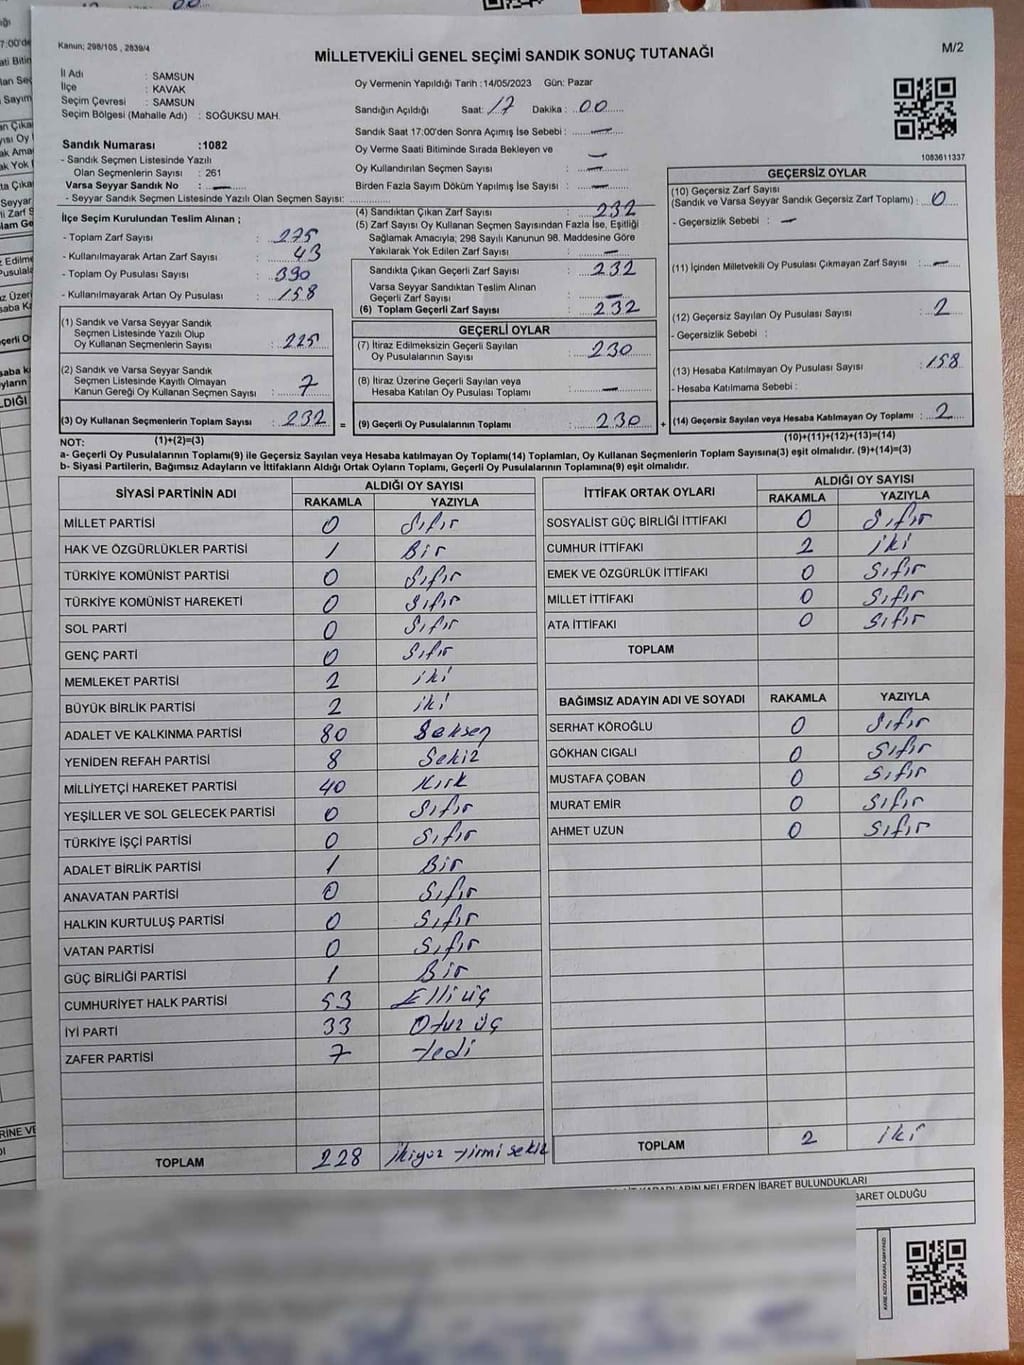 Kanun; 298/105 , 2839/4
MİLLETVEKİLİ GENEL SEÇİMİ SANDIK SONUÇ TUTANAĞI
M/2
İl Adı : SAMSUN
İlçe : KAVAK
Seçim Çevresi : SAMSUN
Seçim Bölgesi (Mahalle Adı) : SOĞUKSU MAH.
Oy Vermenin Yapıldığı Tarih :14/05/2023 Gün: Pazar
Sandığın Açıldığı Saat: 17 Dakika : 00
Sandık Saat 17:00'den Sonra Açımış İse Sebebi : —
Oy Verme Saati Bitiminde Sırada Bekleyen ve
Oy Kullandırılan Seçmen Sayısı : —
Birden Fazla Sayım Döküm Yapılmış İse Sayısı : —
1083611337
Sandık Numarası :1082
- Sandık Seçmen Listesinde Yazılı
Olan Seçmenlerin Sayısı : 261
Varsa Seyyar Sandık No : —
- Seyyar Sandık Seçmen Listesinde Yazılı Olan Seçmen Sayısı:
İlçe Seçim Kurulundan Teslim Alınan ;
- Toplam Zarf Sayısı : 275
- Kullanılmayarak Artan Zarf Sayısı : 43
- Toplam Oy Pusulası Sayısı : 390
- Kullanılmayarak Artan Oy Pusulası : 158
(1) Sandık ve Varsa Seyyar Sandık
Seçmen Listesinde Yazılı Olup
Oy Kullanan Seçmenlerin Sayısı : 225
(2) Sandık ve Varsa Seyyar Sandık
Seçmen Listesinde Kayıtlı Olmayan
Kanun Gereği Oy Kullanan Seçmen Sayısı : 7
(3) Oy Kullanan Seçmenlerin Toplam Sayısı : 232 =
(4) Sandıktan Çıkan Zarf Sayısı : 232
(5) Zarf Sayısı Oy Kullanan Seçmen Sayısından Fazla İse, Eşitliği
Sağlamak Amacıyla; 298 Sayılı Kanunun 98. Maddesine Göre
Yakılarak Yok Edilen Zarf Sayısı : —
Sandıkta Çıkan Geçerli Zarf Sayısı : 232
Varsa Seyyar Sandıktan Teslim Alınan
Geçerli Zarf Sayısı : —
(6) Toplam Geçerli Zarf Sayısı : 232
GEÇERLİ OYLAR
(7) İtiraz Edilmeksizin Geçerli Sayılan
Oy Pusulalarının Sayısı : 230
(8) İtiraz Üzerine Geçerli Sayılan veya
Hesaba Katılan Oy Pusulası Toplamı : —
(9) Geçerli Oy Pusulalarının Toplamı : 230 +
GEÇERSİZ OYLAR
(10) Geçersiz Zarf Sayısı
(Sandık ve Varsa Seyyar Sandık Geçersiz Zarf Toplamı) : 0
- Geçersizlik Sebebi : —
(11) İçinden Milletvekili Oy Pusulası Çıkmayan Zarf Sayısı : —
(12) Geçersiz Sayılan Oy Pusulası Sayısı : 2
- Geçersizlik Sebebi :
(13) Hesaba Katılmayan Oy Pusulası Sayısı : 158
- Hesaba Katılmama Sebebi :
(14) Geçersiz Sayılan veya Hesaba Katılmayan Oy Toplamı : 2
NOT: (1)+(2)=(3)
(10)+(11)+(12)+(13)=(14)
a- Geçerli Oy Pusulalarının Toplamı(9) ile Geçersiz Sayılan veya Hesaba katılmayan Oy Toplamı(14) Toplamları, Oy Kullanan Seçmenlerin Toplam Sayısına(3) eşit olmalıdır. (9)+(14)=(3)
b- Siyasi Partilerin, Bağımsız Adayların ve İttifakların Aldığı Ortak Oyların Toplamı, Geçerli Oy Pusulalarının Toplamına(9) eşit olmalıdır.
SİYASİ PARTİNİN ADI ALDIĞI OY SAYISI
RAKAMLA YAZIYLA
MİLLET PARTİSİ 0 Sıfır
HAK VE ÖZGÜRLÜKLER PARTİSİ 1 Bir
TÜRKİYE KOMÜNİST PARTİSİ 0 Sıfır
TÜRKİYE KOMÜNİST HAREKETİ 0 Sıfır
SOL PARTİ 0 Sıfır
GENÇ PARTİ 0 Sıfır
MEMLEKET PARTİSİ 2 iki
BÜYÜK BİRLİK PARTİSİ 2 iki
ADALET VE KALKINMA PARTİSİ 80 Seksen
YENİDEN REFAH PARTİSİ 8 Sekiz
MİLLİYETÇİ HAREKET PARTİSİ 40 Kırk
YEŞİLLER VE SOL GELECEK PARTİSİ 0 Sıfır
TÜRKİYE İŞÇİ PARTİSİ 0 Sıfır
ADALET BİRLİK PARTİSİ 1 Bir
ANAVATAN PARTİSİ 0 Sıfır
HALKIN KURTULUŞ PARTİSİ 0 Sıfır
VATAN PARTİSİ 0 Sıfır
GÜÇ BİRLİĞİ PARTİSİ 1 Bir
CUMHURİYET HALK PARTİSİ 53 Elli üç
İYİ PARTİ 33 Otuz üç
ZAFER PARTİSİ 7 Yedi
TOPLAM 228 ikiyüz Yirmi sekiz
İTTİFAK ORTAK OYLARI ALDIĞI OY SAYISI
RAKAMLA YAZIYLA
SOSYALİST GÜÇ BİRLİĞİ İTTİFAKI 0 Sıfır
CUMHUR İTTİFAKI 2 iki
EMEK VE ÖZGÜRLÜK İTTİFAKI 0 Sıfır
MİLLET İTTİFAKI 0 Sıfır
ATA İTTİFAKI 0 Sıfır
TOPLAM
BAĞIMSIZ ADAYIN ADI VE SOYADI RAKAMLA YAZIYLA
SERHAT KÖROĞLU 0 Sıfır
GÖKHAN CIGALI 0 Sıfır
MUSTAFA ÇOBAN 0 Sıfır
MURAT EMİR 0 Sıfır
AHMET UZUN 0 Sıfır
TOPLAM 2 iki
KARARLARIN NELERDEN İBARET BULUNDUKLARI
BARET OLDUĞU